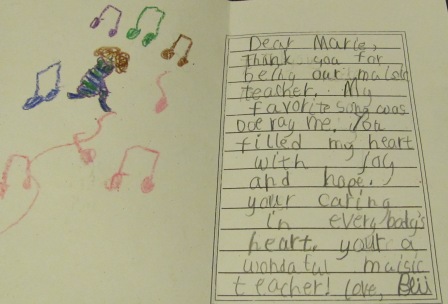 Dear Marie,
Thank you for
being our maisic
teacher. My
favorite song was
Doe ray me. You
filled my heart
with joy
and hope.
your caring
in everybody's
heart. your a
wondaful maisic
teacher! Love,